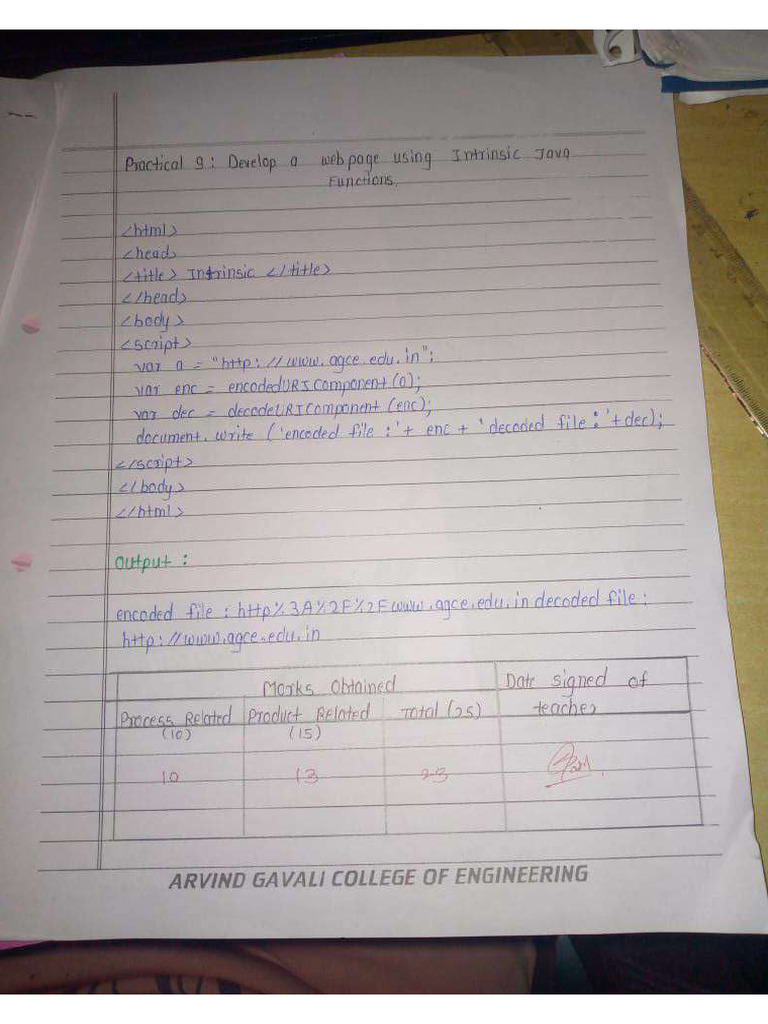 Practical 9: Develop a webpage using Intrinsic Java
Functions.
<html>
<head>
<title> Intrinsic </title>
</head>
<body>
<script>
var a = "http://www.agce.edu.in";
var enc = encodedURIComponent(a);
var dec = decodeURIComponent(enc);
document.write ('encoded file :'+ enc + 'decoded file:'+dec);
</script>
</body>
</html>
Output :
encoded file : http%3A%2F%2Fwww.agce.edu.in decoded file:
http://www.agce.edu.in
Marks Obtained
Date signed of
teacher
Process Related
(10)
Product Related
(15)
Total (25)
10 13 23
ARVIND GAVALI COLLEGE OF ENGINEERING